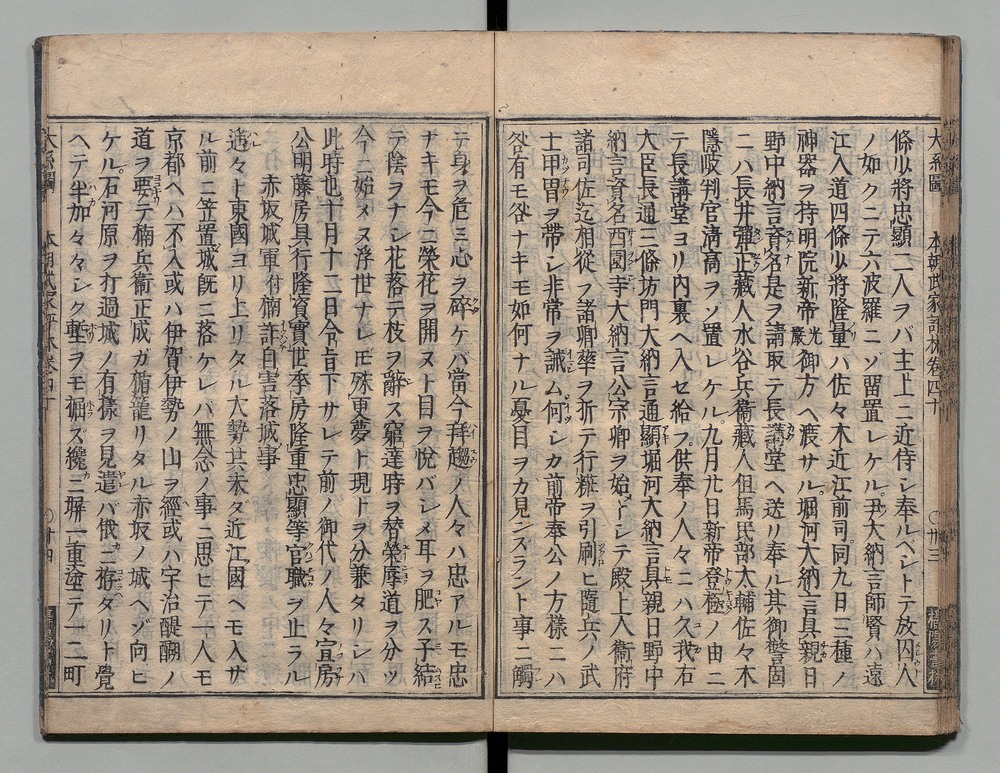 條少將忠顯二人ヲバ主上ニ近侍シ奉ルヘシトテ放囚人
ノ如クニテ六波羅ニゾ留置レケル尹大納言師賢ハ遠
江入道四條少將隆量ハ佐々木近江前司同九日三種ノ
神器ヲ持明院新帝光嚴御方ヘ渡サル堀河大納言具親日
野中納言資名是ヲ請取テ長講堂ヘ送リ奉ル其御警固
ニハ長井彈正藏人水谷兵衞藏人但馬民部太輔佐々木
隱岐判官淸高ヲソ置レケル九月廿日新帝登極ノ由ニ
テ長講堂ヨリ内裏ヘ入セ給フ供奉ノ人々ニハ久我右
大臣長通三條坊門大納言通顯堀河大納言具親日野中
納言資名西園寺大納言公宗卿ヲ始メトシテ殿上人衞府
諸司佐迄相從フ諸卿華ヲ折テ行粧ヲ引刷ヒ隨兵ノ武
士甲冑ヲ帶シ非常ヲ誡ム何シカ前帝奉公ノ方樣ニハ
咎有モ咎ナキモ如何ナル憂目ヲカ見ンズラント事ニ觸
テ身ヲ危ミ心ヲ碎ケバ當今拜趨ノ人々ハ忠アルモ忠
ナキモ今ニ榮花ヲ開ヌト目ヲ悅バシメ耳ヲ肥ス子結
テ陰ヲナシ花落テ枝ヲ辭ス窮達時ヲ替榮辱道ヲ分ツ
今ニ始メヌ浮世ナレモ殊更夢ト現トヲ分兼タリシハ
此時也十月十二日令旨下サレテ前ノ御代ノ人々宣房
公明藤房具行隆資實世季房隆重忠顯等官職ヲ止ラル
赤坂城軍付楠詐自害落城事
遙々ト東國ヨリ上リタル大勢共未ダ近江國ヘモ入サ
ル前ニ笠置城既ニ落ケレバ無念ノ事ニ思ヒテ一人モ
京都ヘハ不入或ハ伊賀伊勢ノ山ヲ經或ハ宇治醍醐ノ
道ヲ要テ楠兵衞正成ガ楯籠リタル赤坂ノ城ヘゾ向ヒ
ケル石河原ヲ打過城ノ有樣ヲ見遣バ俄ニ拵タリト覺
ヘテ半加々々シク塹ヲモ堀ズ纔ニ塀一重塗テ一二町